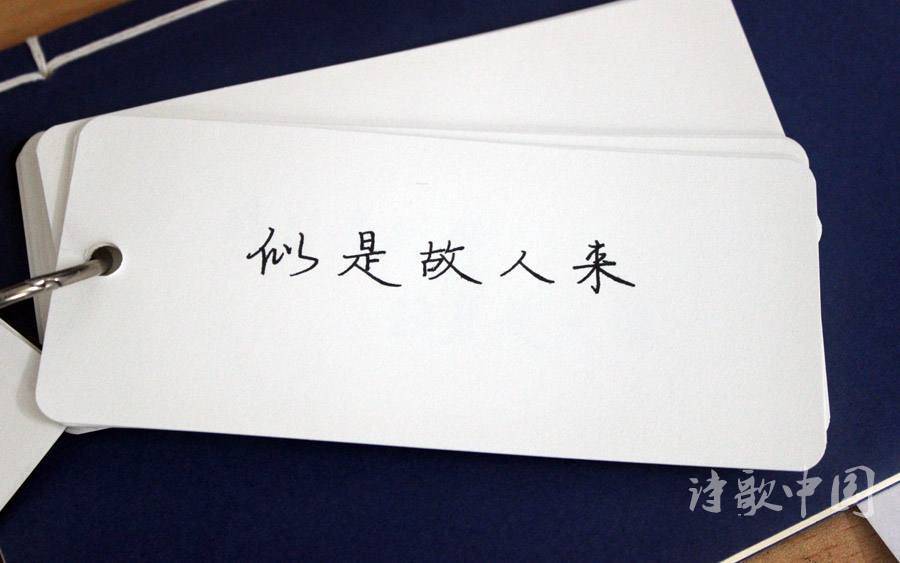 似是故人来
诗歌中国